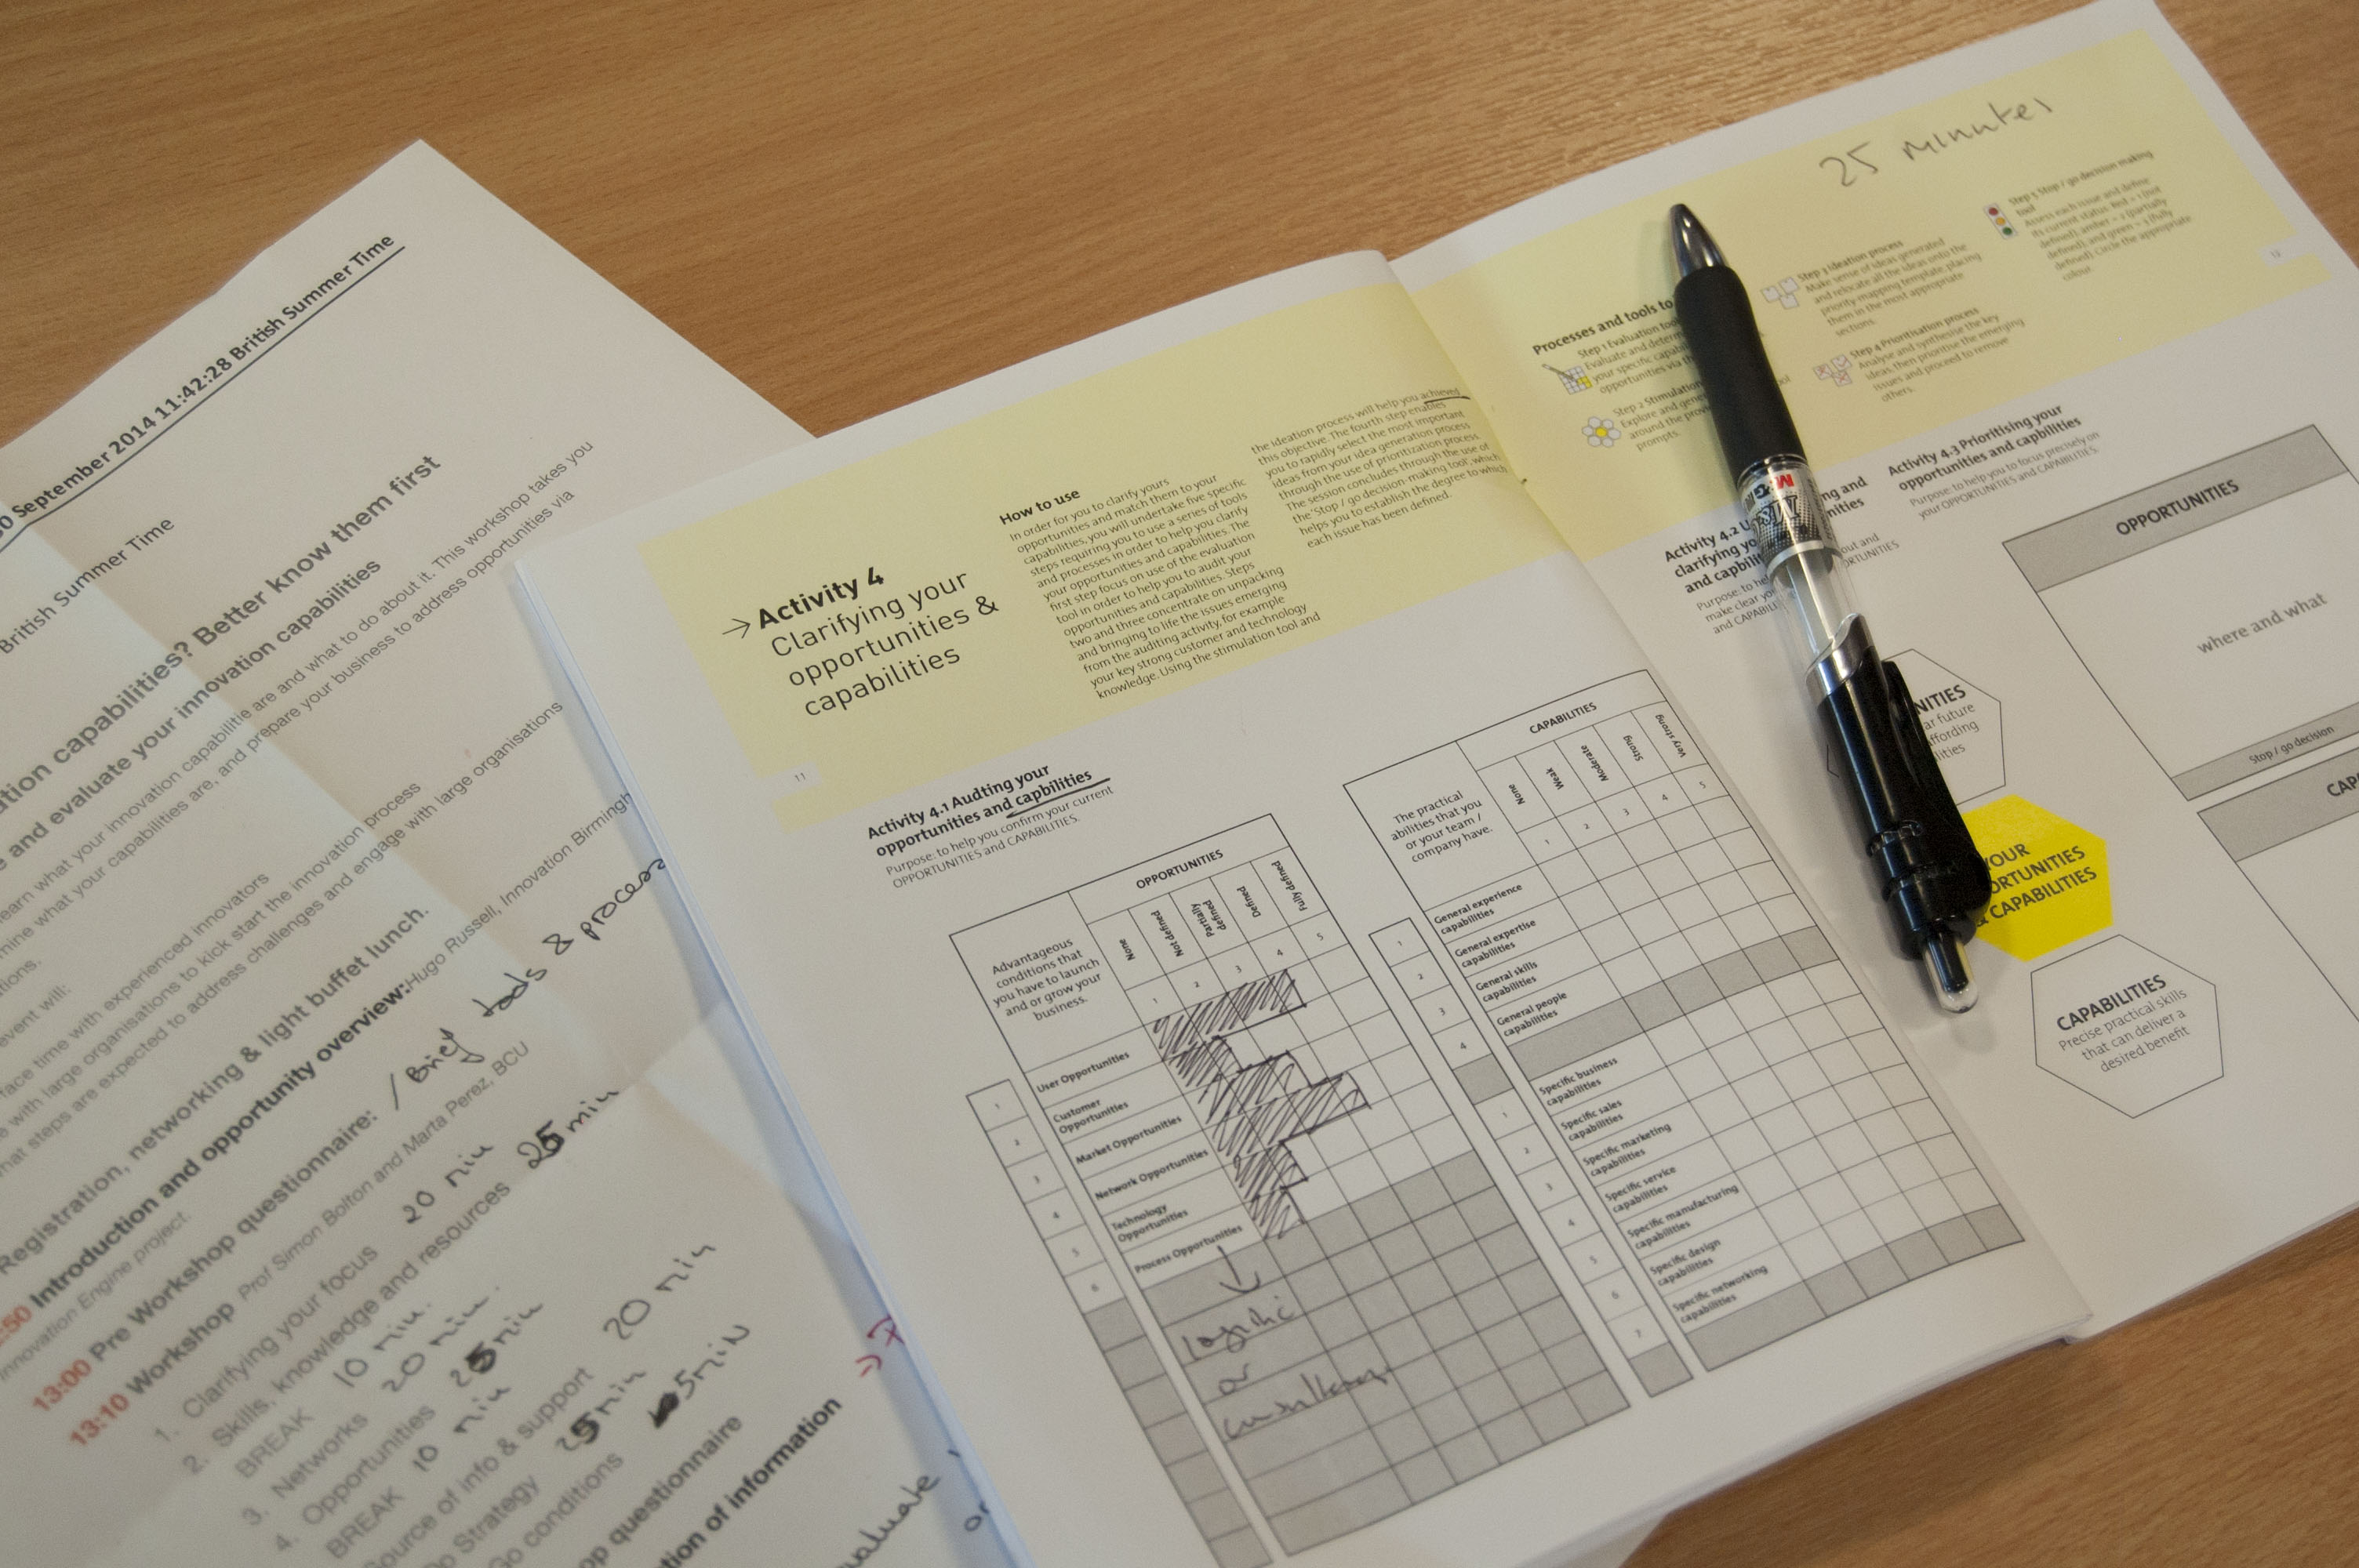 30 September 2014 11:42:28 British Summer Time
British Summer Time
capabilities? Better know them first
and evaluate your innovation capabilities
learn what your innovation capabilitie are and what to do about it. This workshop takes you
what your capabilities are, and prepare your business to address opportunities via
event will:
face time with experienced innovators
with large organisations to kick start the innovation process
what steps are expected to address challenges and engage with large organisations
Registration, networking & light buffet lunch.
:50 Introduction and opportunity overview: Hugo Russell, Innovation Birmingh
Innovation Engine project.
13:00 Pre Workshop questionnaire: / Brief tools & process
13:10 Workshop Prof Simon Bolton and Marta Perez, BCU
1. Clarifying your focus 20 min
2. Skills, knowledge and resources 25 min
BREAK 10 min.
3. Networks 20 min.
4. Opportunities 25 min
BREAK 10 min
Source of info & support 20 min
Strategy 25 min
Go conditions 5 min
op questionnaire
tion of information
evaluate
or
→ Activity 4
Clarifying your
opportunities &
capabilities
How to use
In order for you to clarify yours
opportunities and match them to your
capabilities, you will undertake five specific
steps requiring you to use a series of tools
and processes in order to help you clarify
your opportunities and capabilities. The
first step focus on use of the evaluation
tool in order to help you to audit your
opportunities and capabilities. Steps
two and three concentrate on unpacking
and bringing to life the issues emerging
from the auditing activity, for example
your key strong customer and technology
knowledge. Using the stimulation tool and
the ideation process will help you achieve
this objective. The fourth step enables
you to rapidly select the most important
ideas from your idea generation process
through the use of prioritization process.
The session concludes through the use of
the 'Stop / go decision-making tool', which
helps you to establish the degree to which
each issue has been defined.
11
Activity 4.1 Audting your
opportunities and capbilities
Purpose: to help you confirm your current
OPPORTUNITIES and CAPABILITIES.
OPPORTUNITIES
Advantageous
conditions that
you have to launch
and or grow your
business.
None
Not defined
Partially
defined
Defined
Fully defined
1 2 3 4 5
1 User Opportunities
2 Customer
Opportunities
3 Market Opportunities
4 Network Opportunities
5 Technology
Opportunities
6 Process Opportunities
logistic
or
CAPABILITIES
The practical
abilities that you
or your team /
company have.
None
Weak
Moderate
Strong
Very strong
1 2 3 4 5
1 General experience
capabilities
2 General expertise
capabilities
3 General skills
capabilities
4 General people
capabilities
1 Specific business
capabilities
2 Specific sales
capabilities
3 Specific marketing
capabilities
4 Specific service
capabilities
5 Specific manufacturing
capabilities
6 Specific design
capabilities
7 Specific networking
capabilities
25 minutes
Processes and tools to
Step 1 Evaluation tool
Evaluate and determ
your specific capab
opportunities via th
Step 2 Stimulation
Explore and gene
around the prov
prompts.
Step 3 Ideation process
Make sense of ideas generated
and relocate all the ideas onto the
priority-mapping template placing
them in the most appropriate
sections.
Step 4 Prioritisation process
Analyse and synthesise the key
ideas, then prioritise the emerging
issues and proceed to remove
others.
Step 5 Stop / go decision making
tool
Assess each issue and define
its current status Red = 1 (not
defined), amber = 2 (partially
defined), and green = 3 (fully
defined). Circle the appropriate
colour.
12
Activity 4.2 U ng and
clarifying yo nities
and capbilit
Purpose: to he out and
make clear yo RTUNITIES
and CAPABILI
Activity 4.3 Prioritising your
opportunities and capbilities
Purpose: to help you to focus precisely on
your OPPORTUNITIES and CAPABILITIES.
M&G
NITIES
ar future
ffording
lities
YOUR
ORTUNITIES
& CAPABILITIES
CAPABILITIES
Precise practical skills
that can deliver a
desired benefit
OPPORTUNITIES
where and what
Stop / go decision
CAP